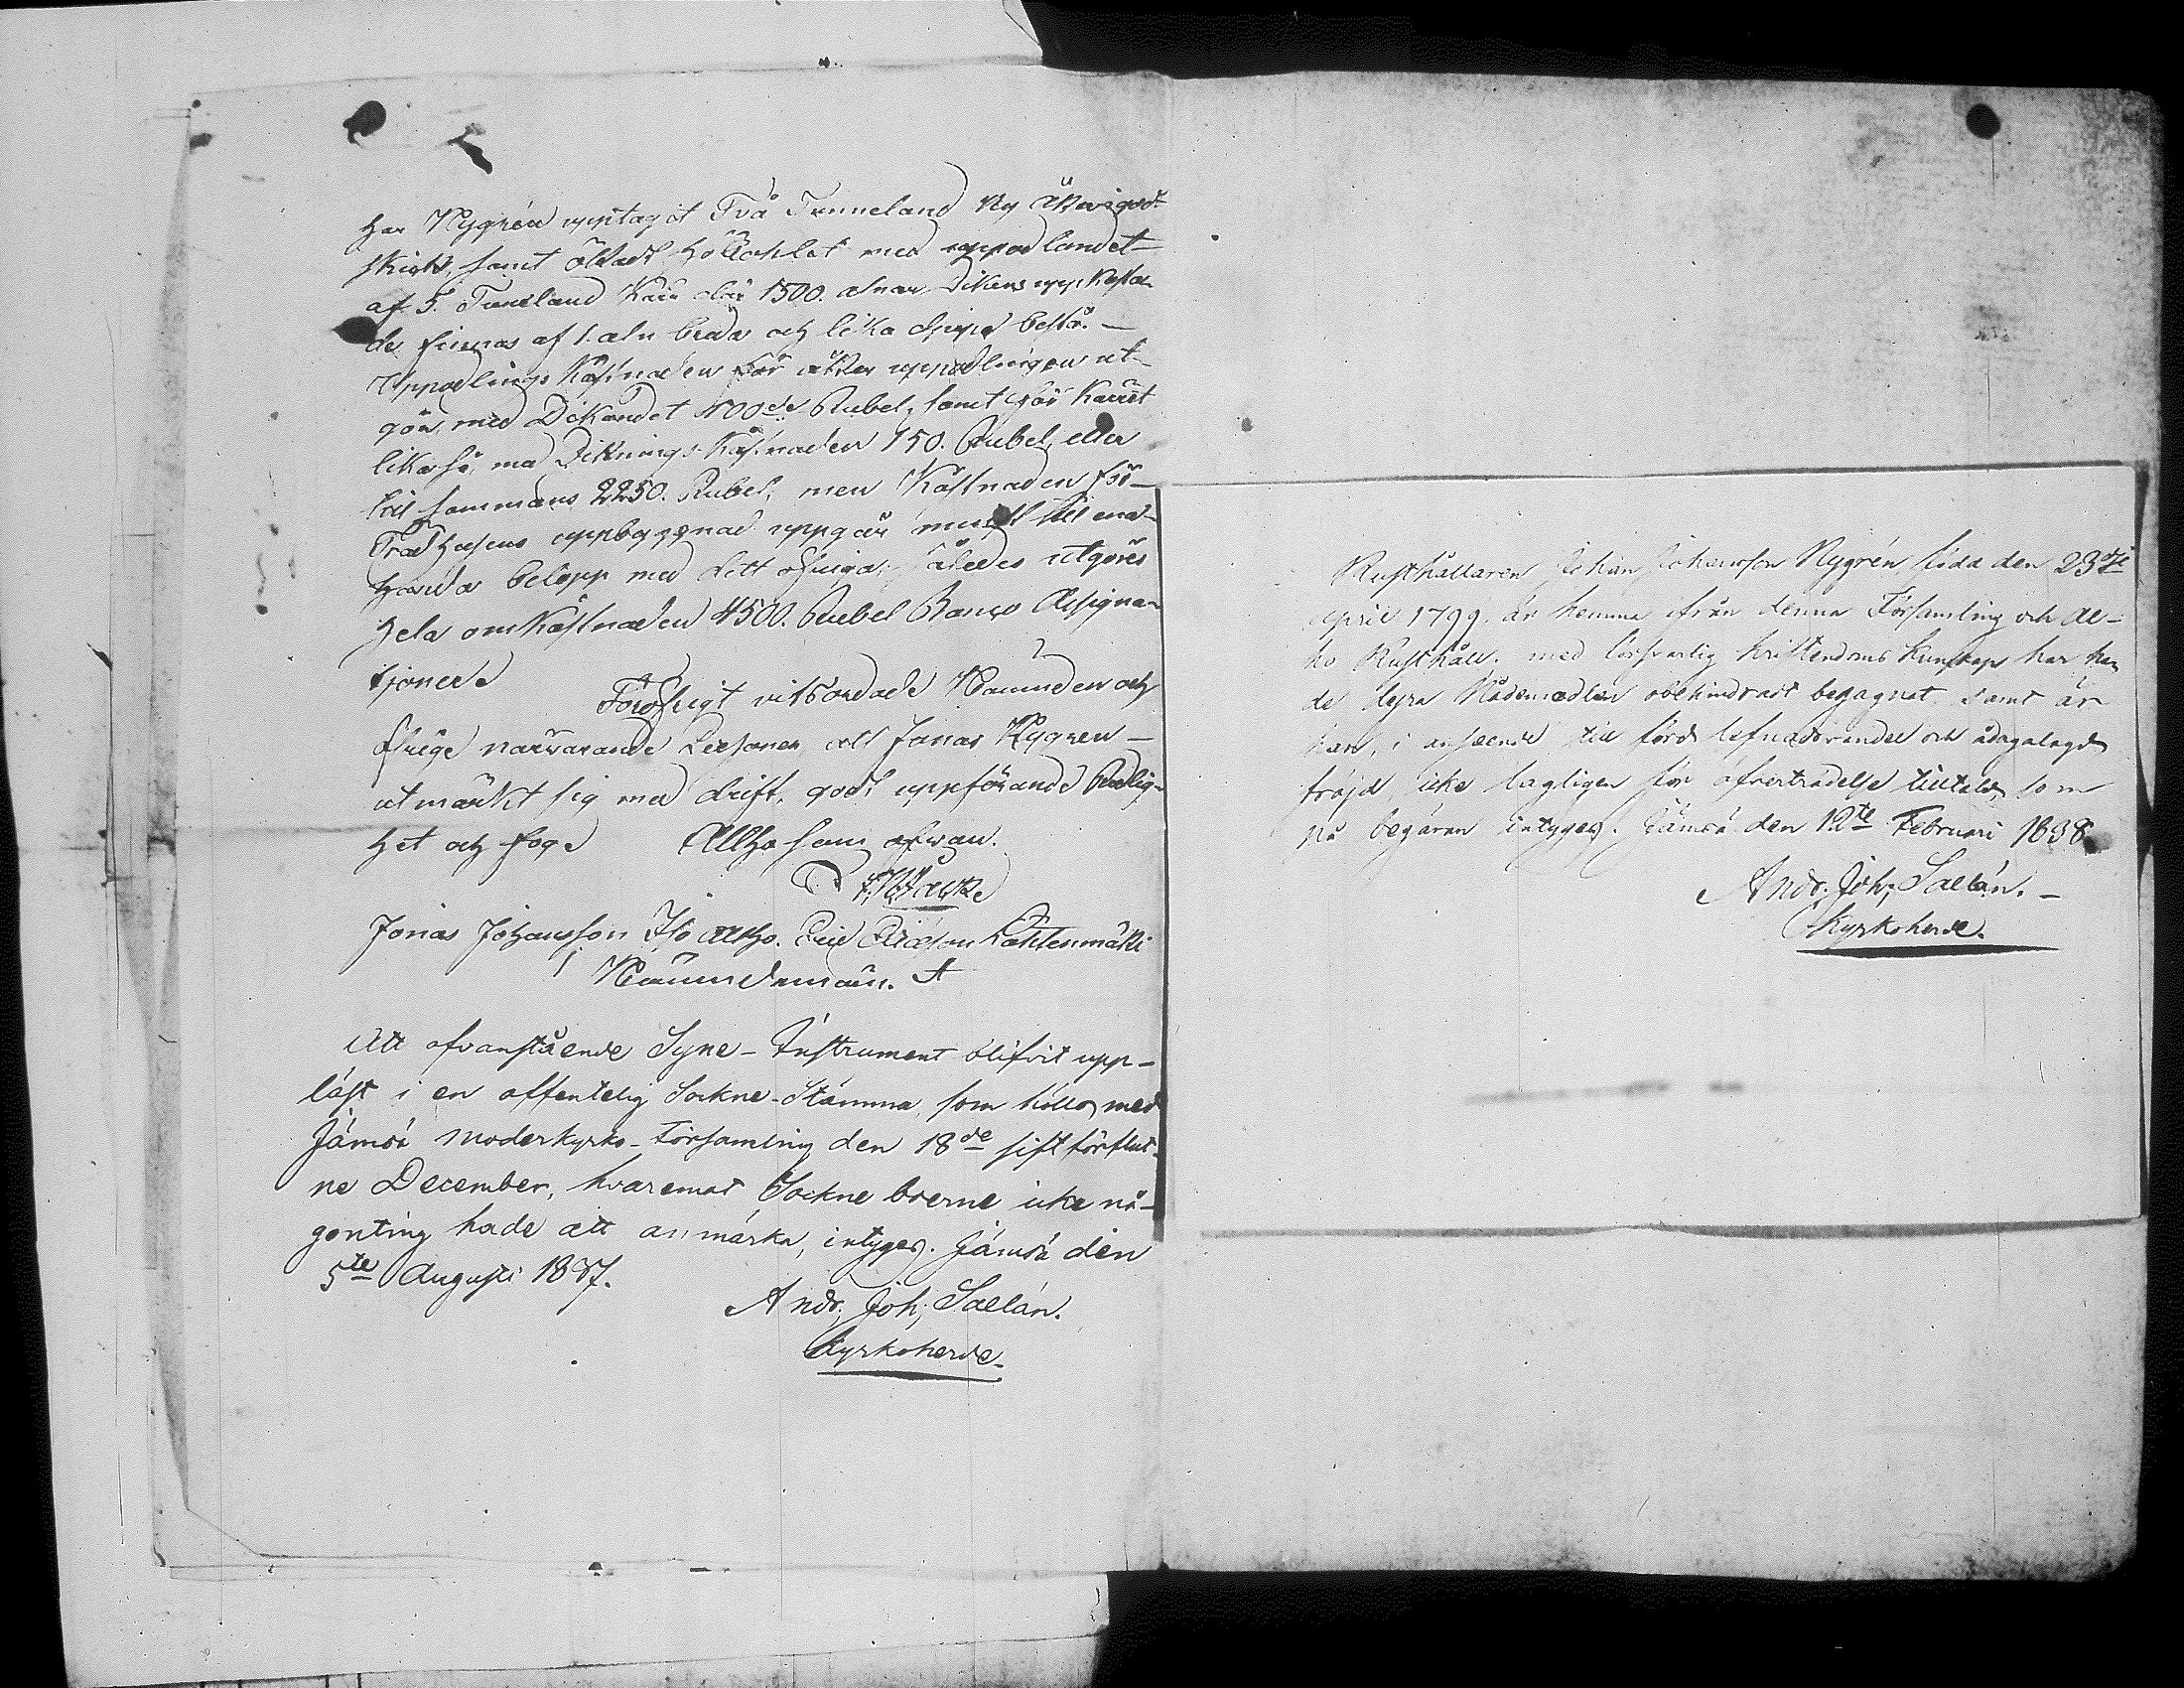 har Nygrén upptagit Två Tunneland Ny Åker i godt
skick, samt ökadt med uppodlandet
af 5. Tuneland Kärr där 1500. alnar Dikens uppkasta-
de finnas af 1. aln breda och lika djupa bestå. —
Uppodlings Kåstnaden för åker uppodlingen ut-
gör, med Dikandet Rubel, samt för Kärret
likaså, med Diknings Kåstnaden 150. Rubel, eller
till sammans 2250. Rubel, men Kåstnaden för
Träd husens uppbyggnad uppgår till ena-
handa belopp med ditt öfriga, således utgöres
hela omkåstnaden 4500. Rubel Banco Assigna-
tjoner
Föröfrigt vitsordade Nämnden och
öfrige närvarande Personer att Jonas Nygren —
utmärkt sig med drift, godt uppförande Redlig-
het och Alttho som ofwan.
Jonas Johansson Iso Alttho. Eric Ericsson Lahtenmäki
Nämndemän.
Att ofvanstående Syne-Instrument blifvit upp-
läst i en offentelig Sockne-Stämma, som hölls med
Jämsä Moderkyrko-Församling den 18de sistförflut-
ne December, hvaremot Sockneboerne icke nå-
gonting hade att anmärka, intygas. Jämsä den
5te Augusti 1837.
Andr. Joh; Sallán.
Kyrkoherde.
Rusthållaren Johan Johansson Nygrén, född den 23dje
April 1799, är hemma ifrån denna Församling och Al-
ho Rusthåll; med försvarlig Kristendoms Kunskap har han
de dyra Nådemedlen obehindradt begagnat, samt är
han, i anseende till förd lefnadsvandel och ådagalagd
fräjd, icke lagligen för öfverträdelse tilltald, som
på begäran intygas. Jämsä den 12te Februari 1838.
Andr. Joh; Sallán. —
Kyrkoherde.